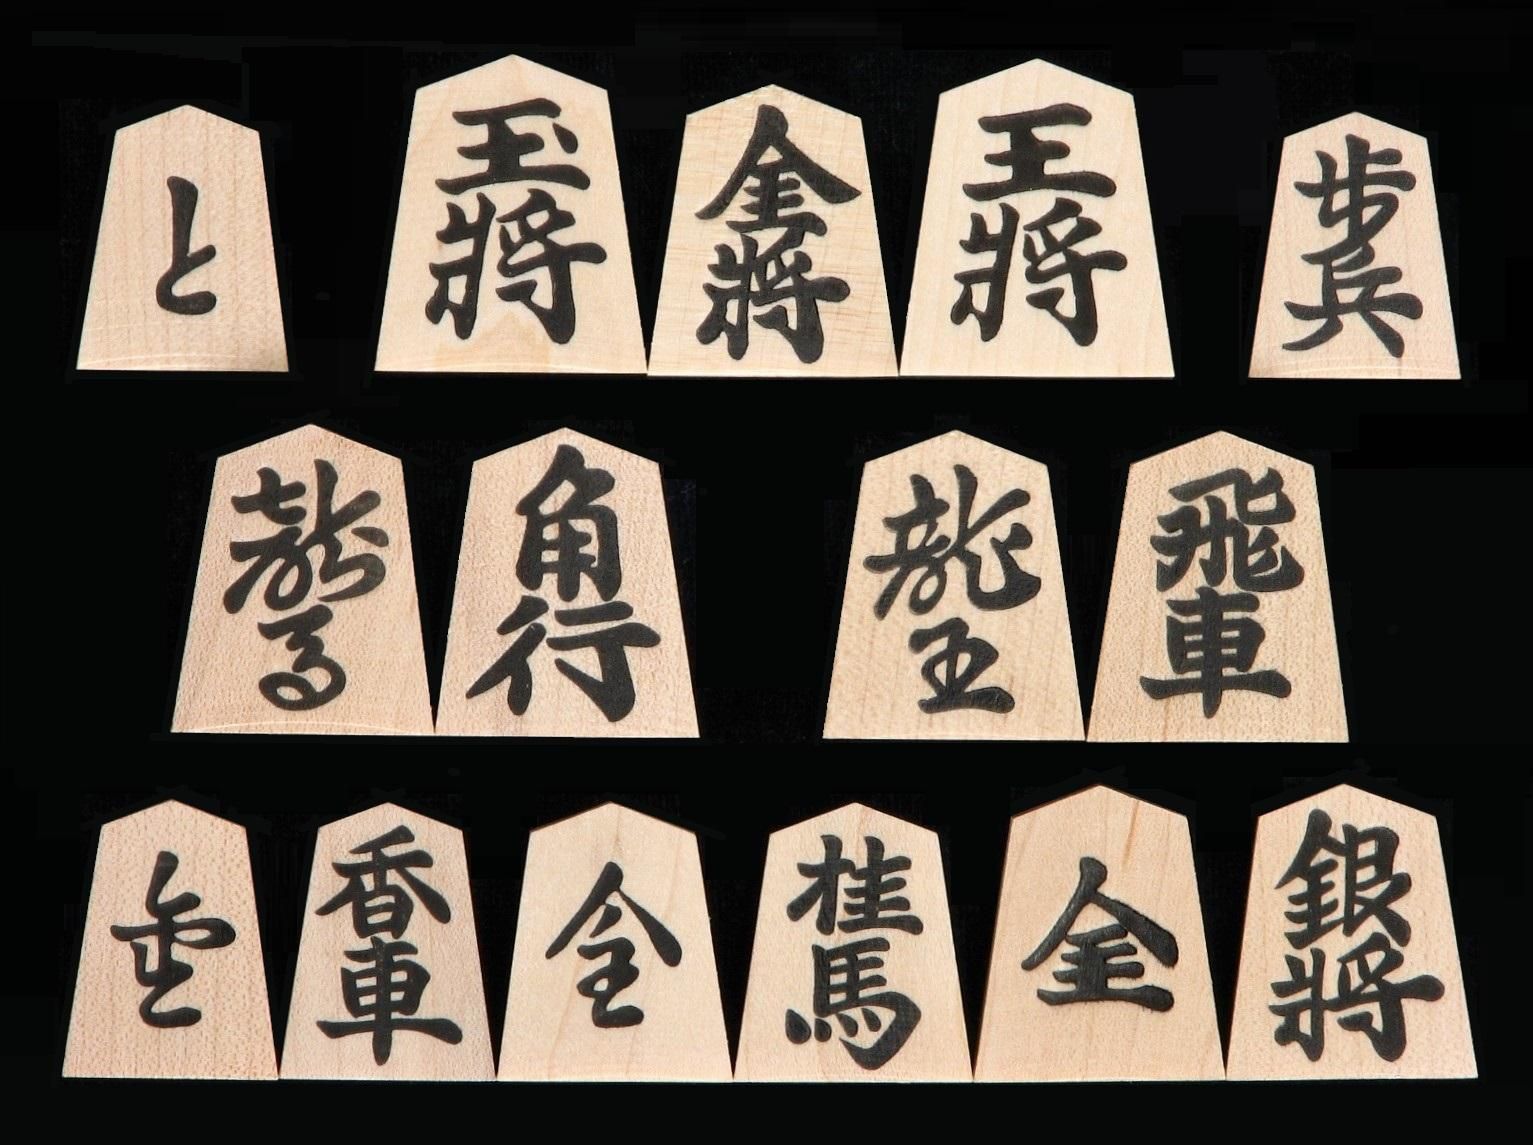 と 玉將 金將 王將 歩兵
龍馬 角行 龍王 飛車
金 香車 全 桂馬 金 銀將